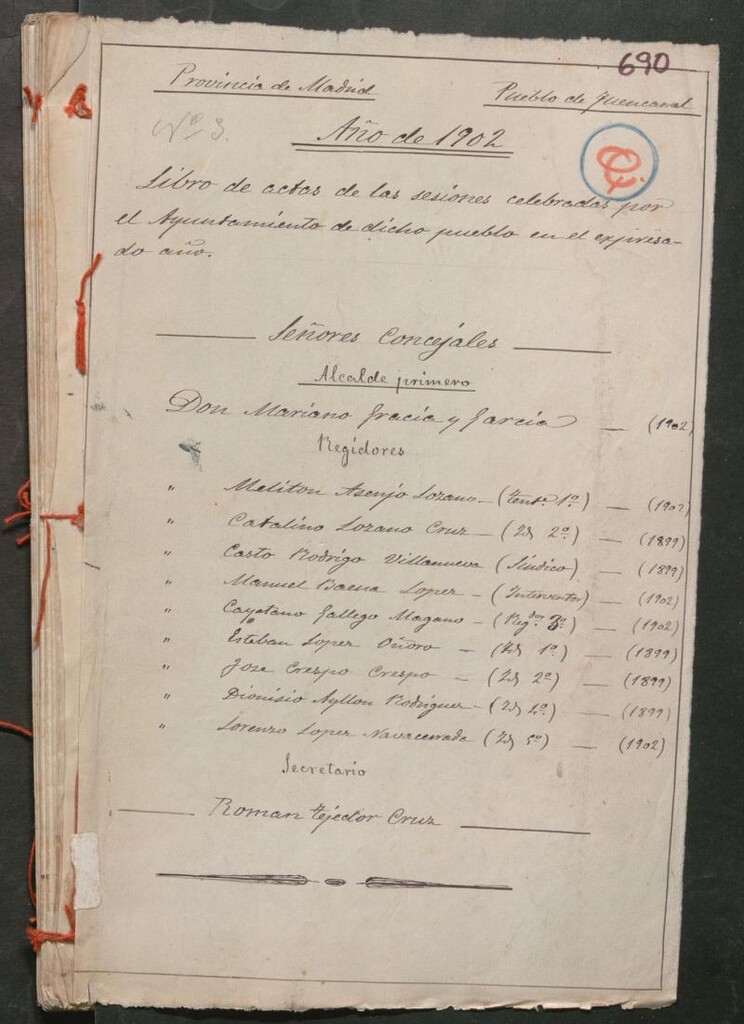 690
Provincia de Madrid Pueblo de Fuencarral
Nº 3.
Año de 1902
Libro de actas de las sesiones celebradas por
el Ayuntamiento de dicho pueblo en el expresa-
do año.
Señores Concejales
Alcalde primero
Don Mariano Gracia y García — (1902)
Regidores
" Meliton Asenjo Lozano — (Tente 1º) — (1902)
" Catalino Lozano Cruz — (Id 2º) — (1899)
" Casto Rodrigo Villanueva (Síndico) — (1899)
" Manuel Baena Lopez — (Interventor) — (1902)
" Cayetano Gallego Magano — (Regdor 3º) — (1902)
" Esteban Lopez Oñoro — (Id 1º) — (1899)
" Jose Crespo Crespo — (Id 2º) — (1899)
" Dionisio Ayllon Rodriguez — (Id 4º) — (1899)
" Lorenzo Lopez Navacerrada (Id 5º) — (1902)
Secretario
Roman Tejedor Cruz